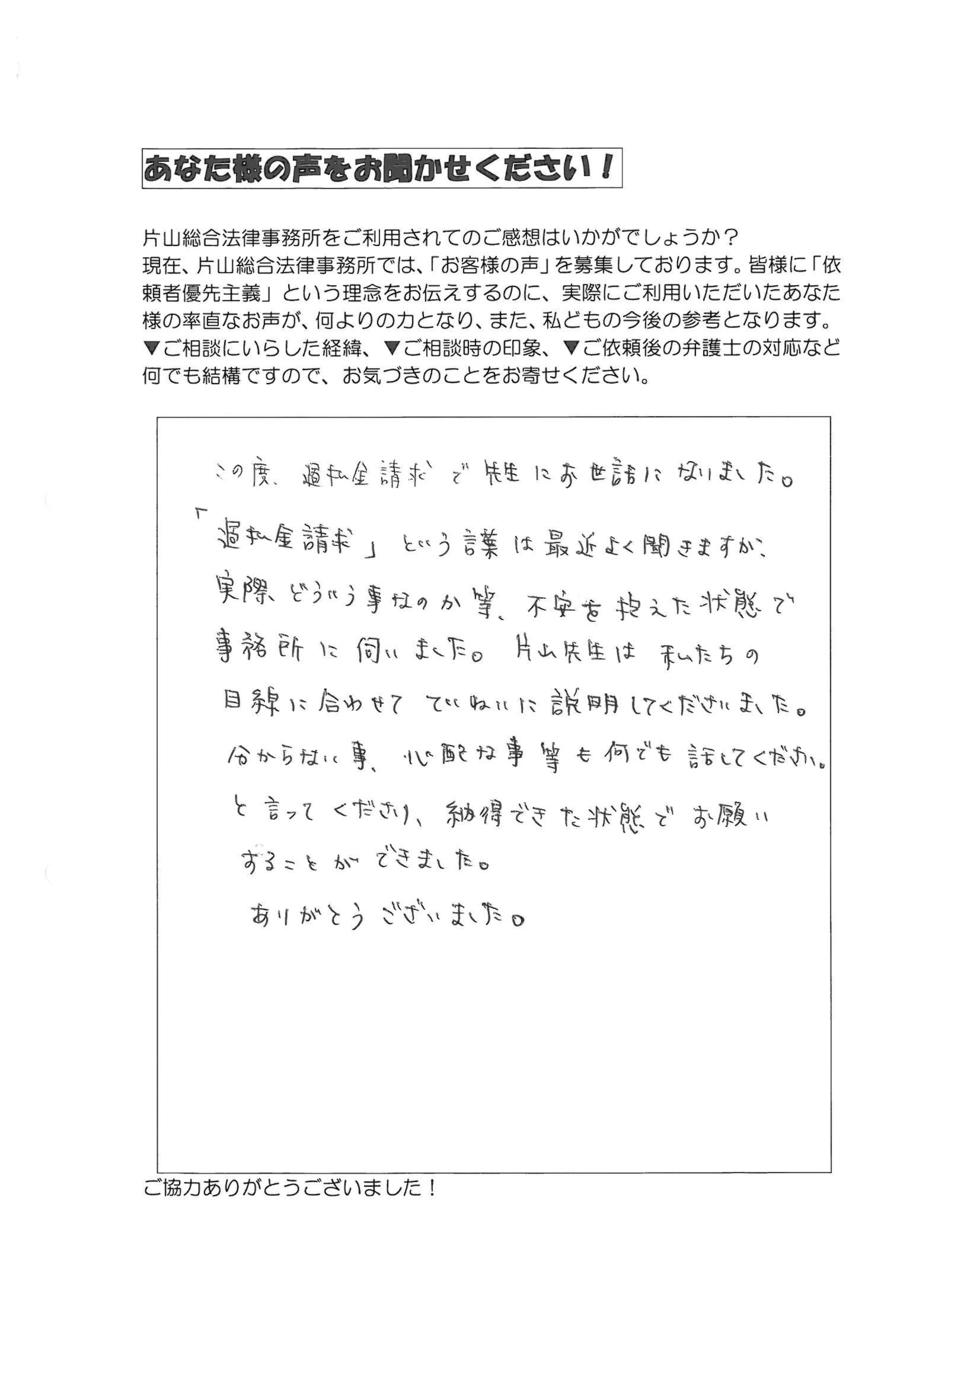 あなた様の声をお聞かせください！
片山総合法律事務所をご利用されてのご感想はいかがでしょうか？
現在、片山総合法律事務所では、「お客様の声」を募集しております。皆様に「依
頼者優先主義」という理念をお伝えするのに、実際にご利用いただいたあなた
様の率直なお声が、何よりの力となり、また、私どもの今後の参考となります。
▼ご相談にいらした経緯、▼ご相談時の印象、▼ご依頼後の弁護士の対応など
何でも結構ですので、お気づきのことをお寄せください。
この度、過払金請求で先生にお世話になりました。
「過払金請求」という言葉は最近よく聞きますが、
実際、どういう事なのか等、不安を抱えた状態で
事務所に伺いました。片山先生は私たちの
目線に合わせてていねいに説明してくださいました。
分からない事、心配な事等も何でも話してください。
と言ってくださり、納得できた状態でお願い
することができました。
ありがとうございました。
ご協力ありがとうございました！